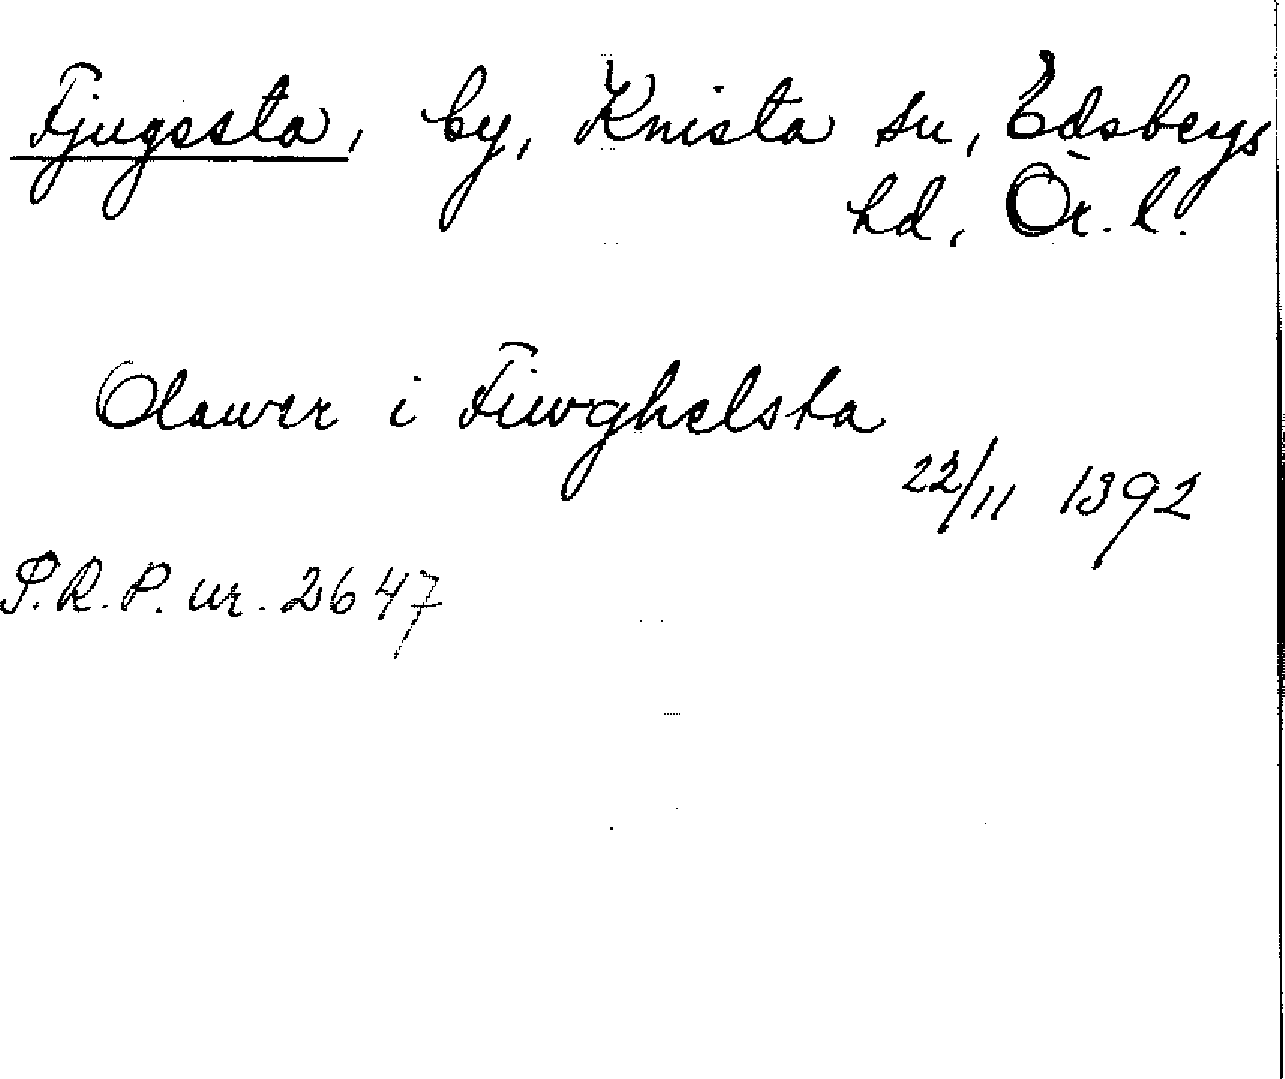 Fjugesta, by, Knista sn, Edsbergs
hd, Ör. l.
Olawer i Fiwghelsta
22/11 1392
S.R.P. nr. 2647